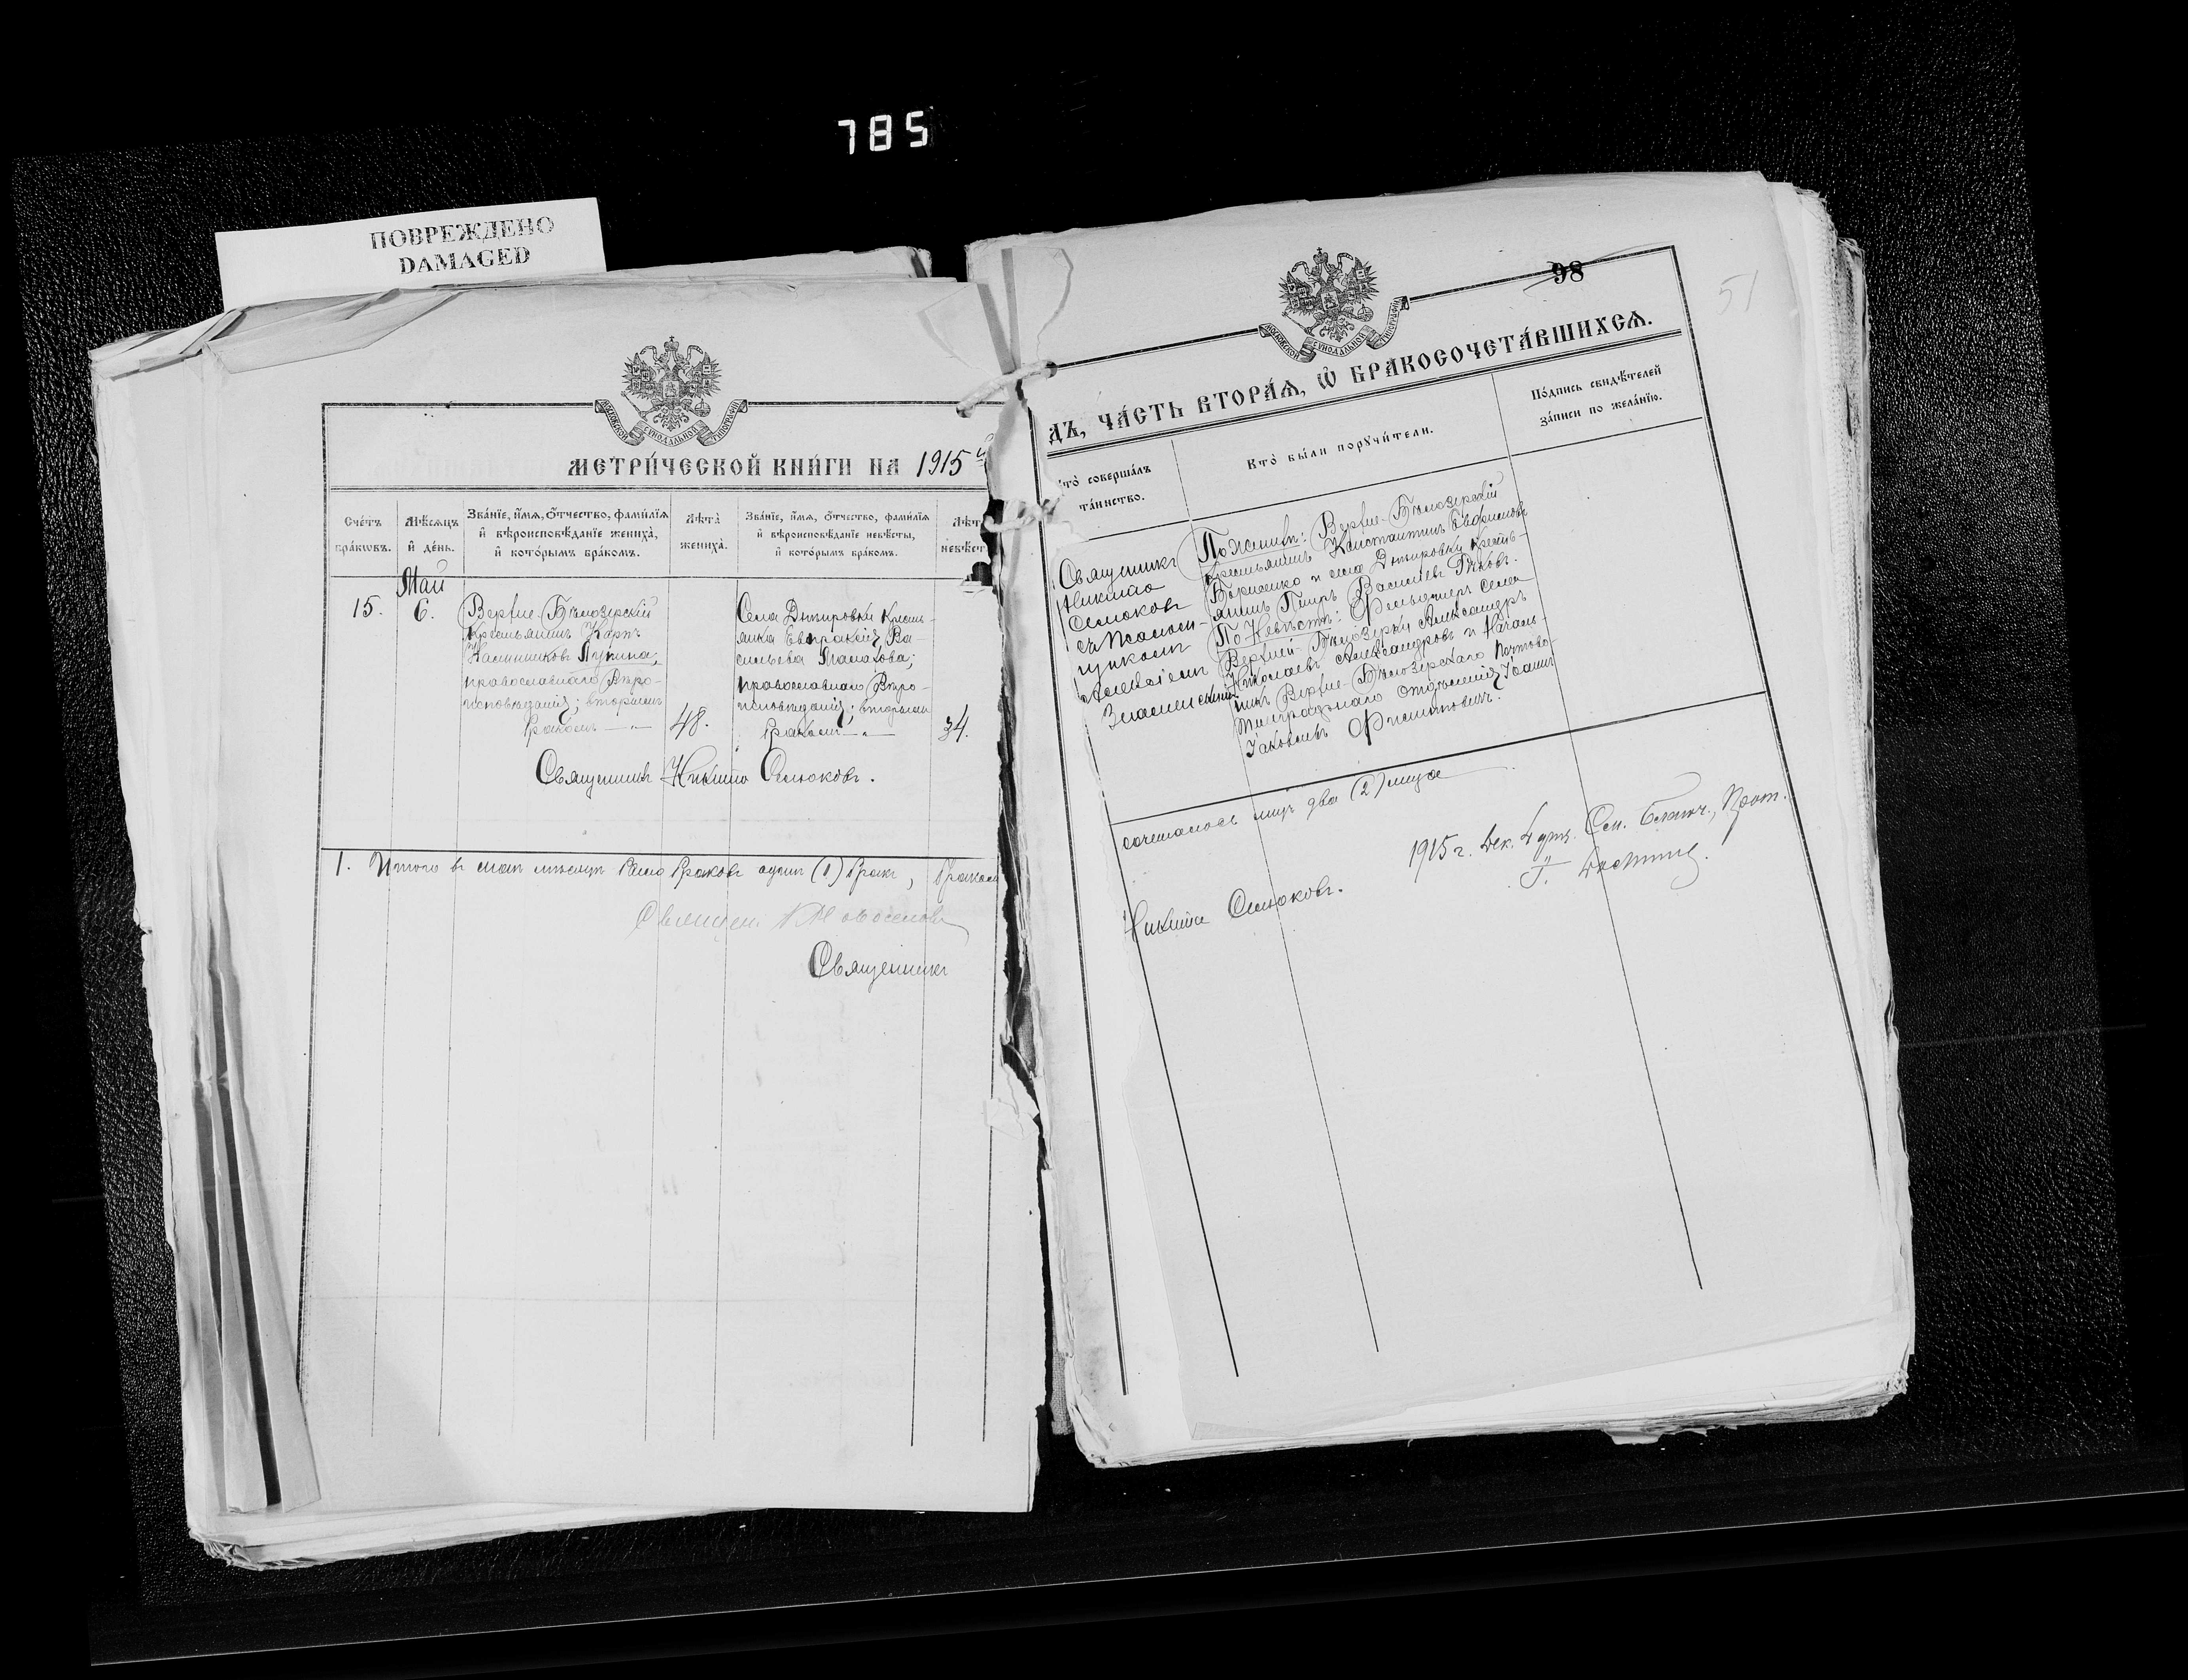 785
ПОВРЕЖДЕНО
DAMAGED
МОСКОВСКОЙ СѴНОДАЛЬНОЙ ТИПОГРАФІИ
МЕТРИ́ЧЕСКОЙ КНИ́ГИ НА 1915
Сче́тъ бра́ковъ.
Мѣ́сяцъ и де́нь.
Зва́нїе, и́мѧ, ѻ́тчество, фами́лїѧ
и҆ вѣроисповѣ́данїе жениха̀,
и҆ кото́рымъ бра́комъ.
Лѣта̀ жениха̀.
Зва́нїе, и́мѧ, ѻ́тчество, фами́лїѧ
и҆ вѣроисповѣ́данїе невѣ́сты,
и҆ кото́рымъ бра́комъ.
Лѣт
невѣст
Май
15.
6.
Верхне-Бѣлозерскій
крестьянинъ Карпъ
Лупина;
православнаго вѣро-
исповѣданія; вторымъ
бракомъ
48.
Села Днѣпровки кресть-
янка Евпраксія Ва-
сильева
православнаго вѣро-
исповѣданія; вторымъ
бракомъ
34.
Священникъ Никита Селюковъ.
1. Итого въ маѣ мѣсяцѣ было браковъ одинъ (1) бракъ, бракомъ
Священ.
Священникъ
98
51
МОСКОВСКОЙ СѴНОДАЛЬНОЙ ТИПОГРАФІИ
ДЪ, ЧА́СТЬ ВТОРА́Ѧ, Ѡ҆ БРАКОСОЧЕТА́ВШИХСѦ.
то̀ соверша́лъ
та́инство.
Кто̀ бы́ли порꙋчи́тели.
По́дпись свидѣ́телей
за́писи по жела́нїю.
Священникъ
Никита
Селюковъ
съ псаломщикомъ
Алексіемъ
Знаменскимъ
По женихѣ: Верхне-Бѣлозерскій
крестьянинъ Константинъ
и села Днѣпровки кресть-
янинъ Петръ Васильевъ
По невѣстѣ: Фельдшеръ села
Верхней-Бѣлозерки Александръ
Николаевъ Александровъ и Началь-
никъ Верхне-Бѣлозерскаго Почтово-
Телеграфнаго Отдѣленія Іоаннъ
Іаковлевъ Филипповичъ.
сочеталось лицъ два (2) лица
Никита Селюковъ.
1915 г. Дек. 4 дня. Прот.